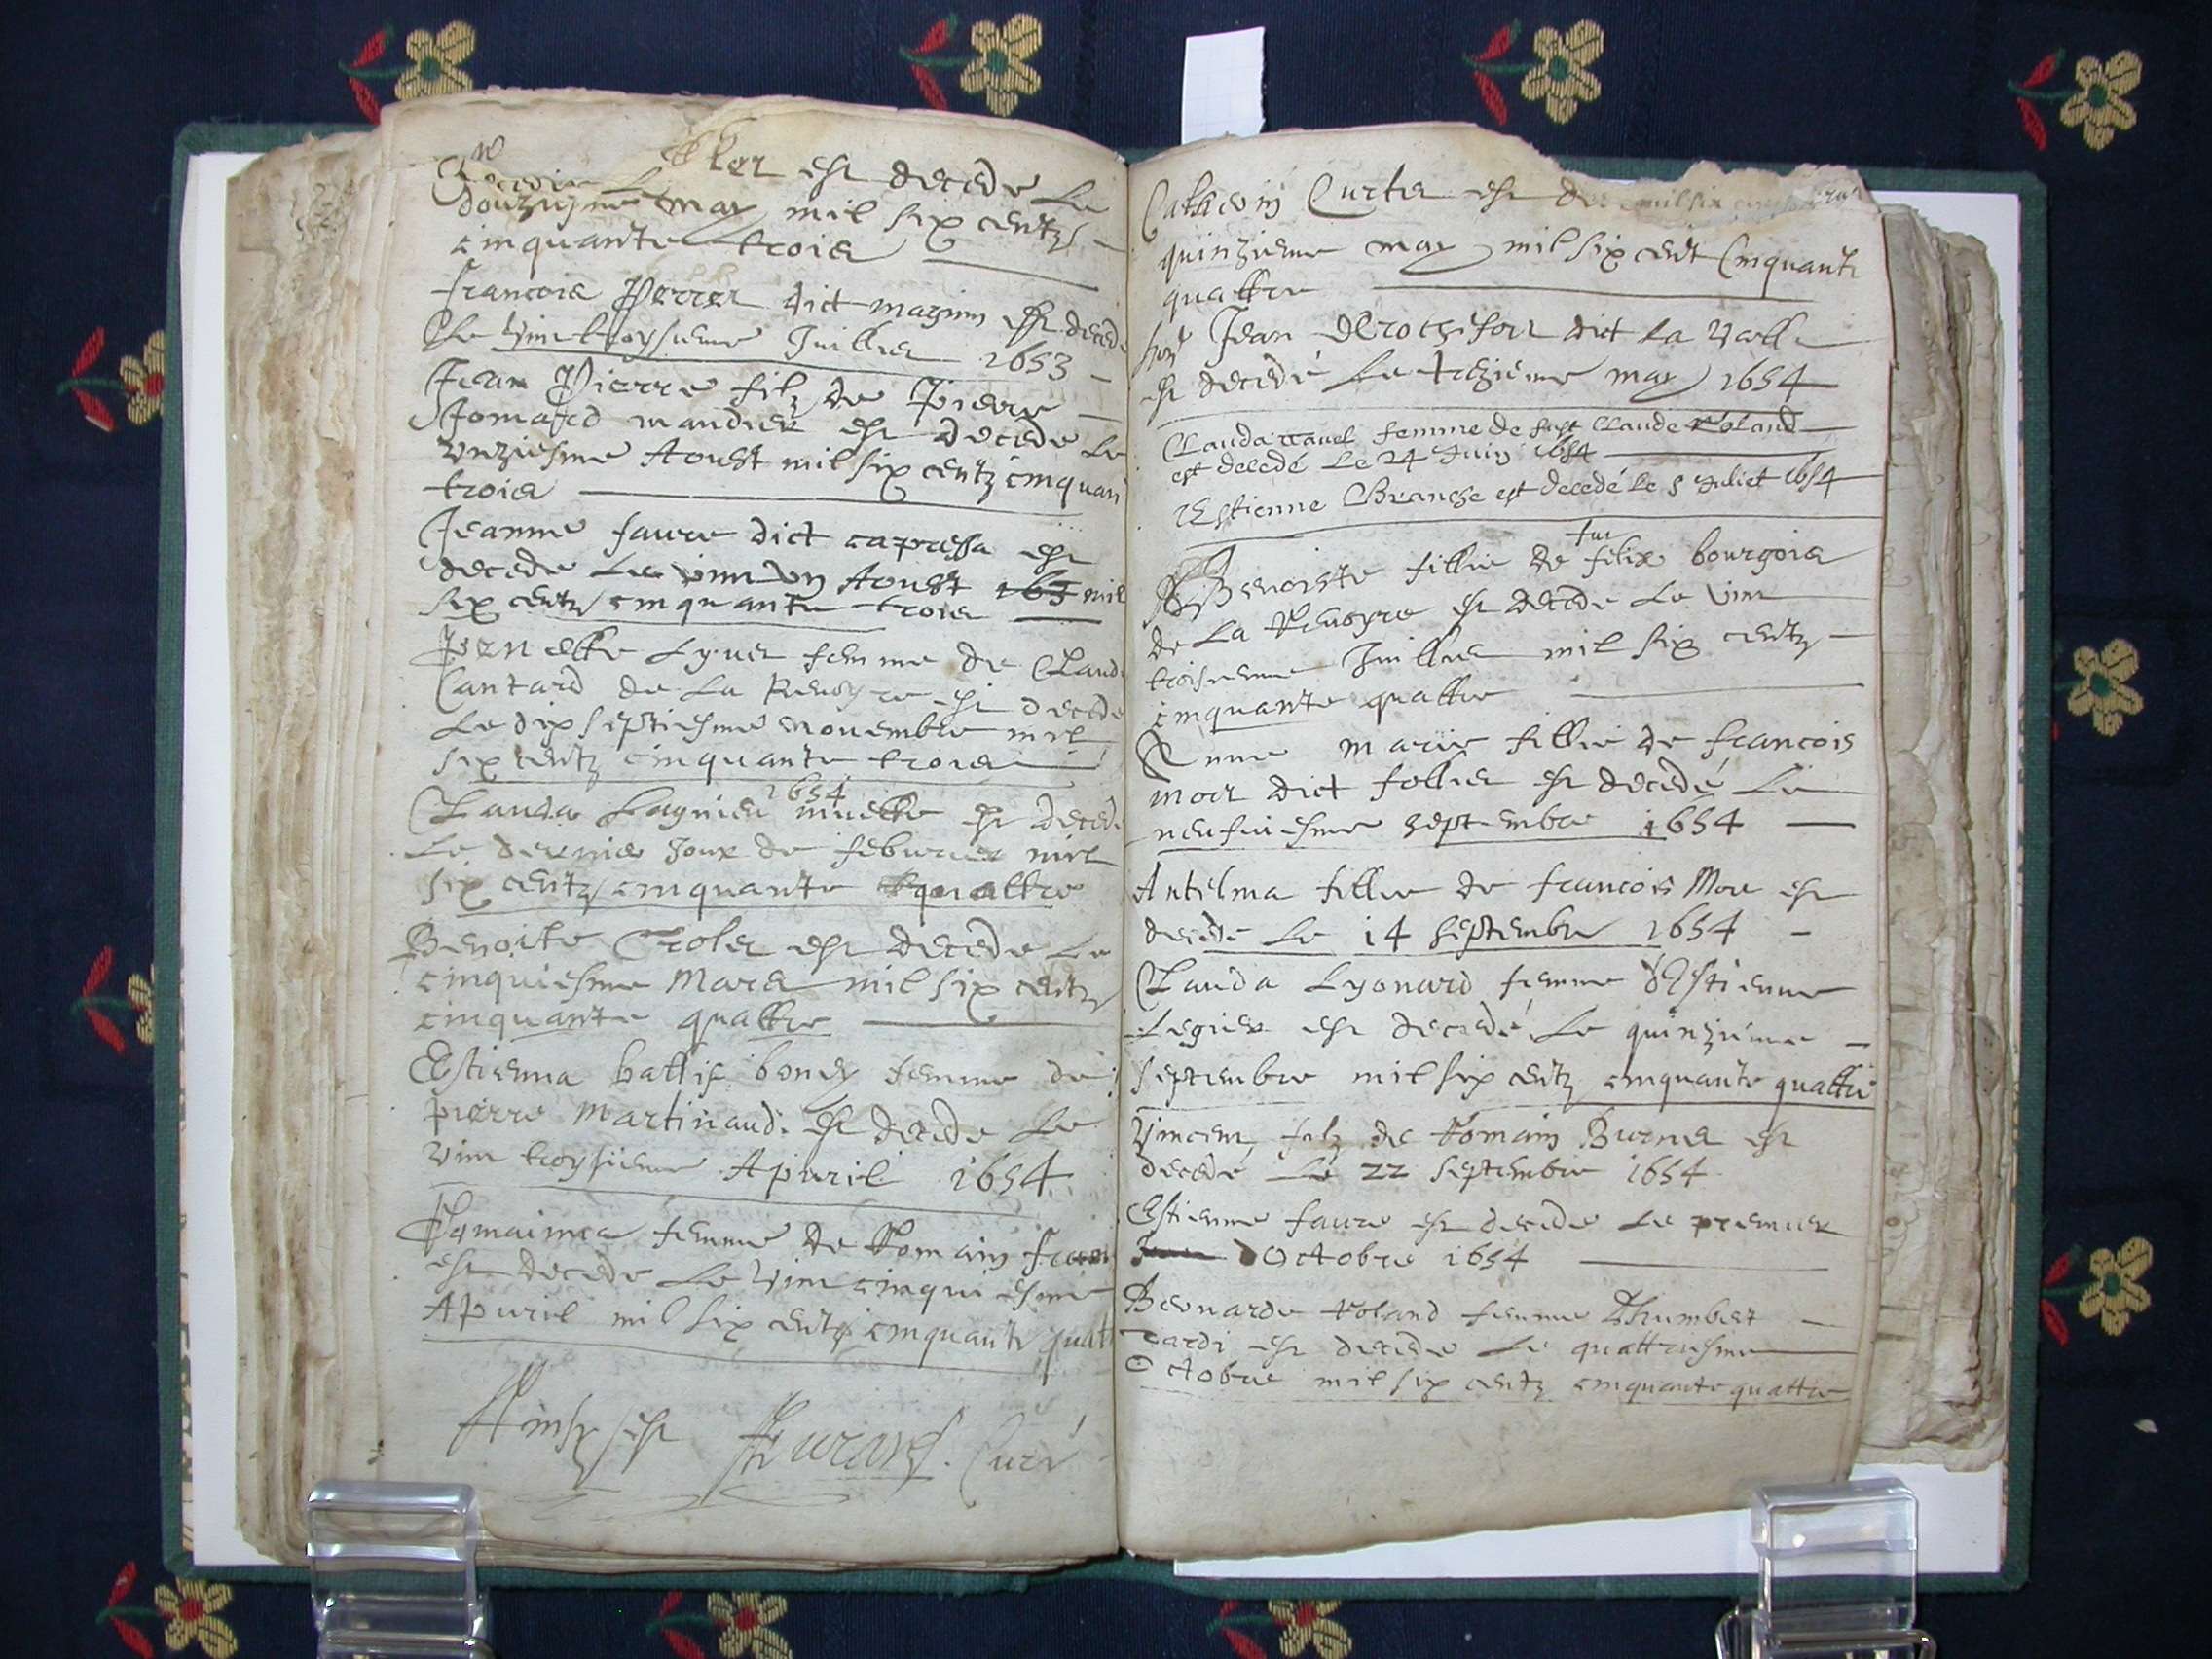 est decede Le
douzujme may mil six centz
cinquante trois
francois Perret dict mazuin est decede
Le vint troysieme Juillet 1653
Jean Pierre filz de Pierre
mandier est decede Le
vnziesme Aoust mil six centz cinquan
trois
Jeanne faure dict capressa est
decede Le vint vn Aoust mil
six centz cinquante trois
Pernette Lyuet femme de Claude
Cantard de La Reuoyre est decede
Le dix septiesme nouembre mil
six centz cinquante trois
1654
Clauda Lagnieu muette est decede
Le dernier Jour de feburier mil
six centz cinquante quattre
Benoite Trolet est decede Le
cinquiesme Mars mil six centz
cinquante quattre
Estienna battis boney femme de
pierre Martinaud est decede Le
vint troysieme Apuril 1654
femme de Romain
est decede Le vint cinquiesme
Apuril mil six centz cinquante quatt
Ainsy est Curé
Catherin Curtet est
quinzieme may mil six cent Cinquante
quattre
hon Jean dict La
est decedé Le trezieme may 1654
Clauda rauel femme de fust Claude roland
est decedé Le 24 Juin 1654
Estienne Branche est decedé Le 5 Juliet 1654
fut
Benoiste fillie de felix bourgois
de La Reuoyre est decede Le vint
troisieme Juillet mil six centz
cinquante quattre
Anne marie fillie de francois
mor dict follier est decedé Le
neufuiesme septembre 1654
Antelma fillie de francois Mor est
decede Le 14 septembre 1654
Clauda Lyonard femme d'Estienne
Legier est decedé Le quinzieme
septembre mil six centz cinquante quattre
Vincent filz de Romain Burnet est
decedé Le 22 septembre 1654
Estienne faure est decede Le premier
Octobre 1654
Bernarde roland femme d'humbert
Tardi est decede Le quattriesme
Octobre mil six centz cinquante quattre